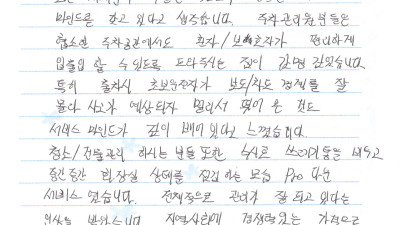 마인드를 갖고 있다고 생각합니다. 주차관리원분들은
협소한 주차공간에서도 환자/보호자가 편리하게
입출입 할 수 있도록 도와주시는 점이 감명 깊었습니다.
특히 출차시 초보운전자가 보도/차도 경계를 잘
몰라 사고가 예상되자 멀리서 뛰어 온 것도
서비스 마인드가 깊이 배어있다고 느꼈습니다.
청소/건물관리 하시는 분들 또한 수시로 쓰레기통을 비우고
중간중간 화장실 상태를 점검하는 모습 Pro 다운
서비스 였습니다. 전체적으로 관리가 잘 되고 있다는
인상을 받았습니다. 지역사회에 경쟁력있는 가격으로